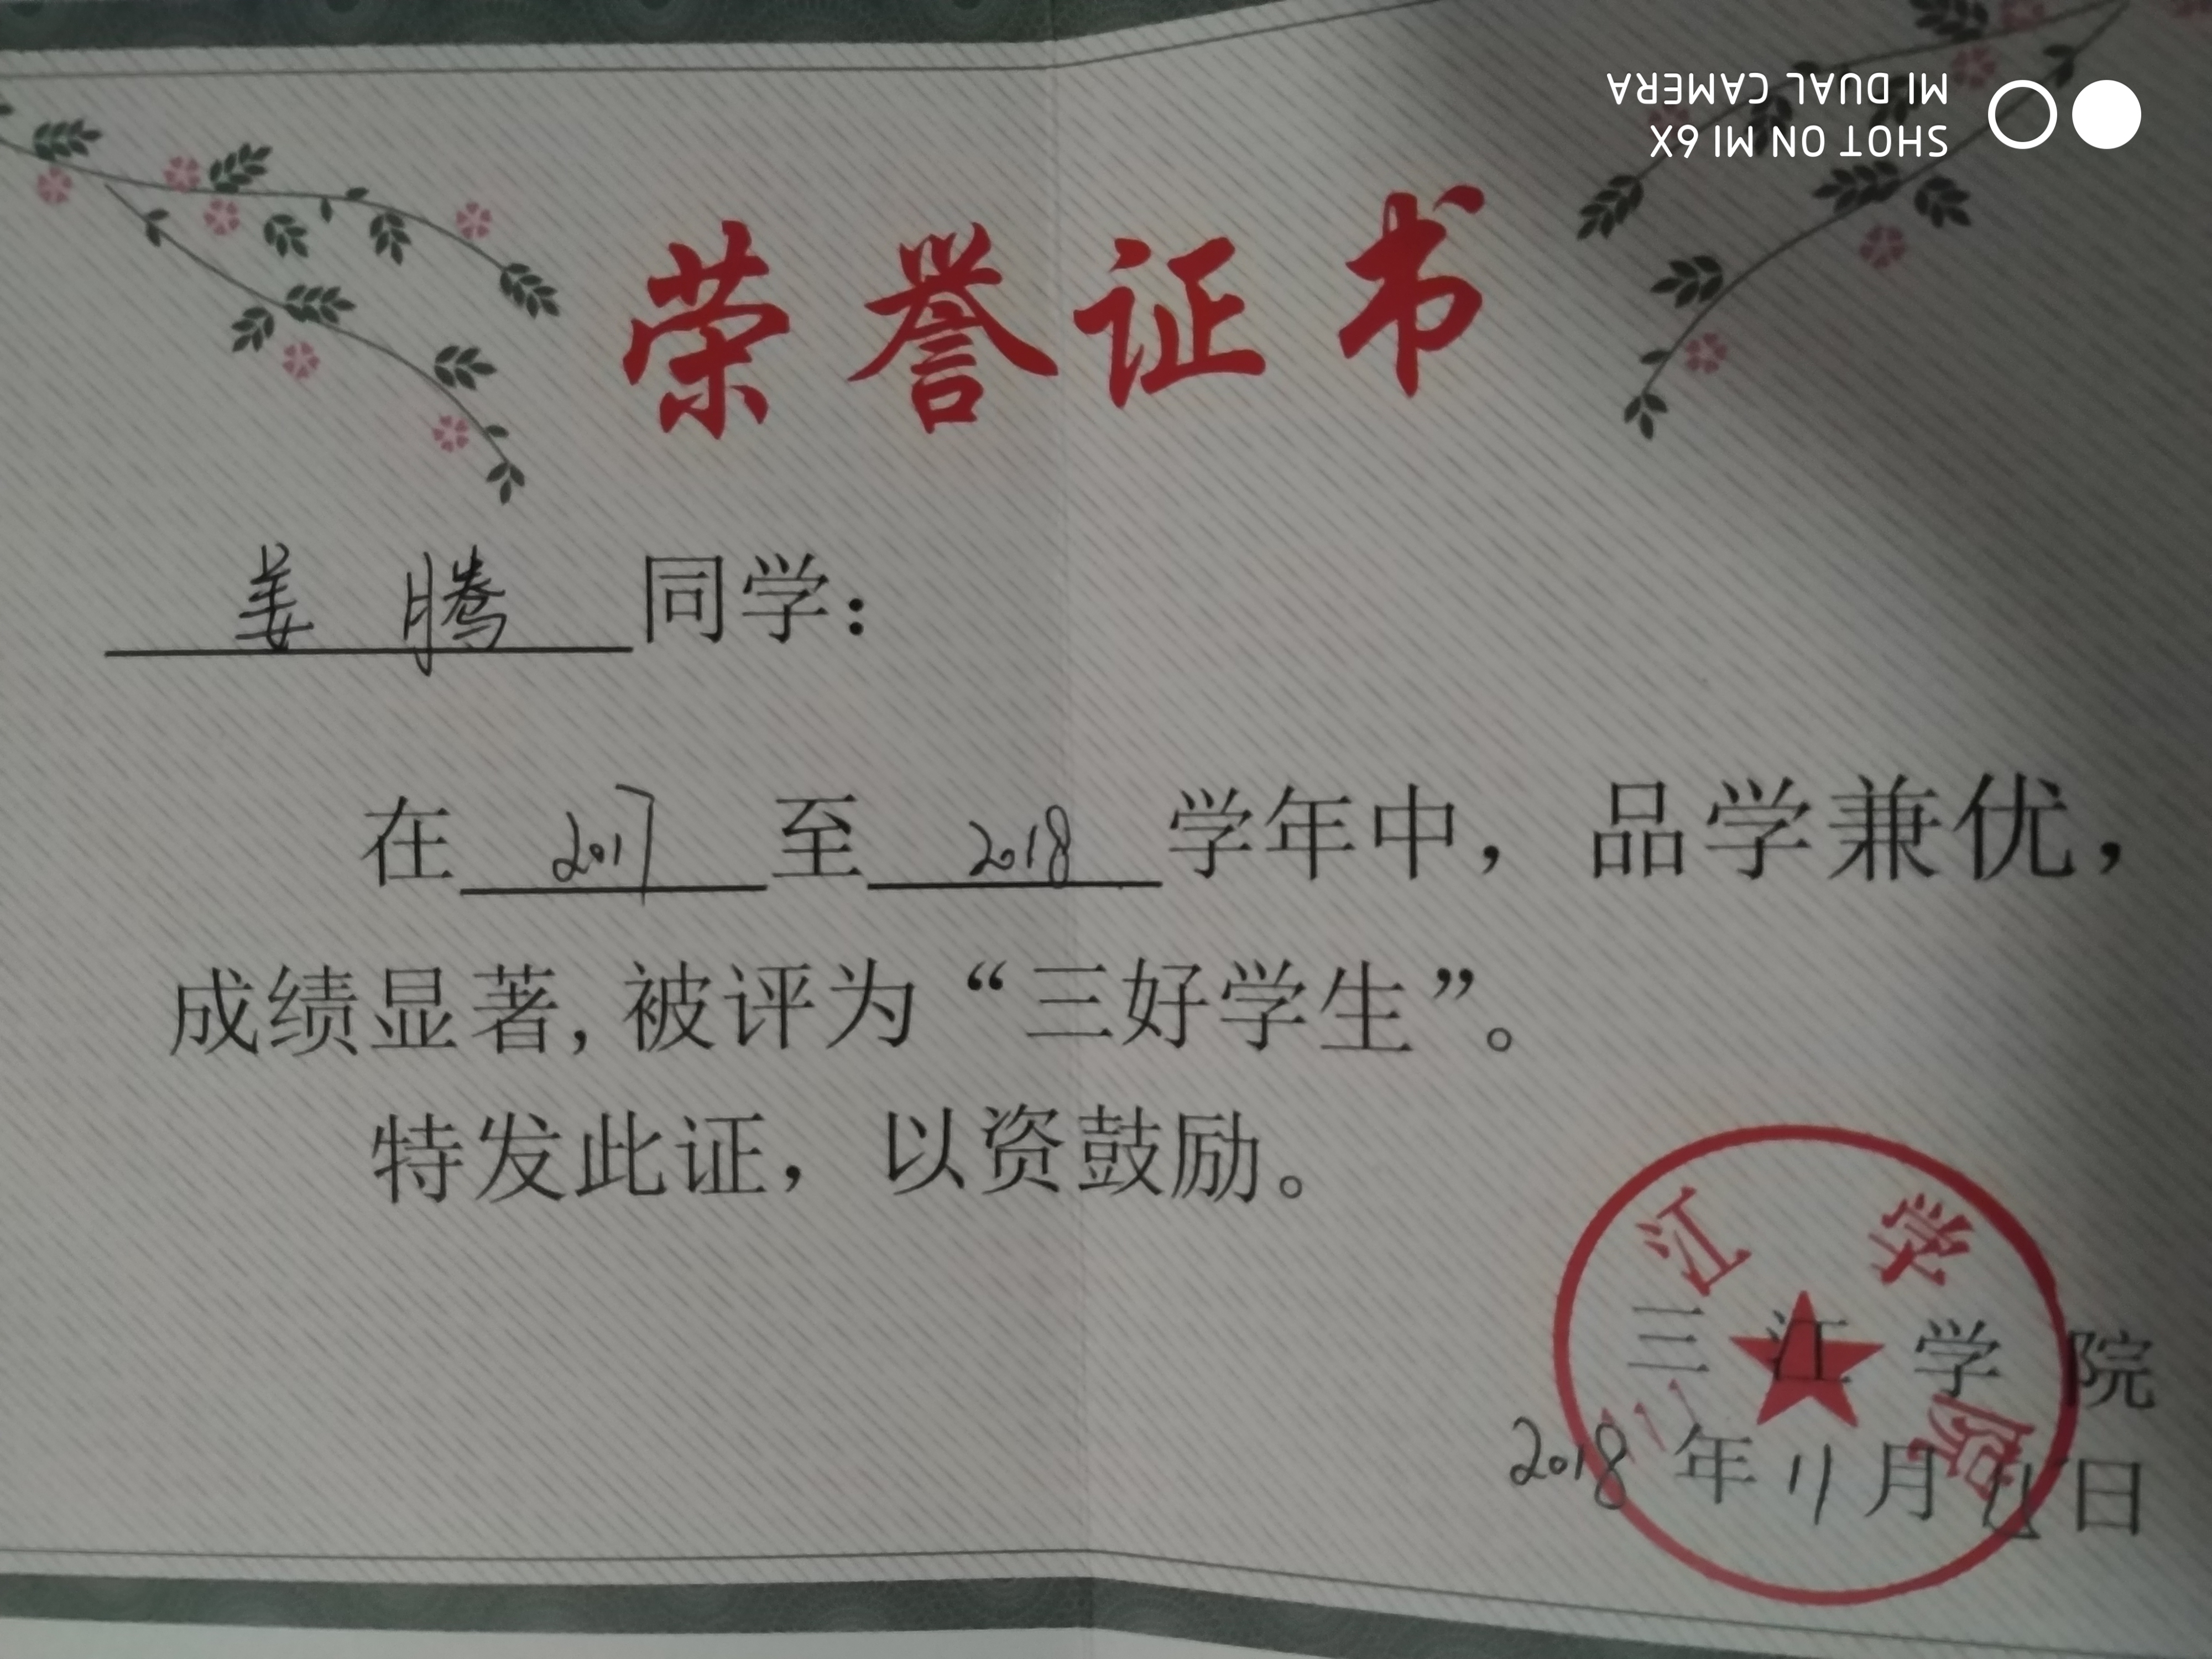 荣誉证书
姜腾同学：
在2017至2018学年中，品学兼优，
成绩显著，被评为“三好学生”。
特发此证，以资鼓励。
三江学院
2018年11月 日
三江学院
SHOT ON MI 6X
MI DUAL CAMERA